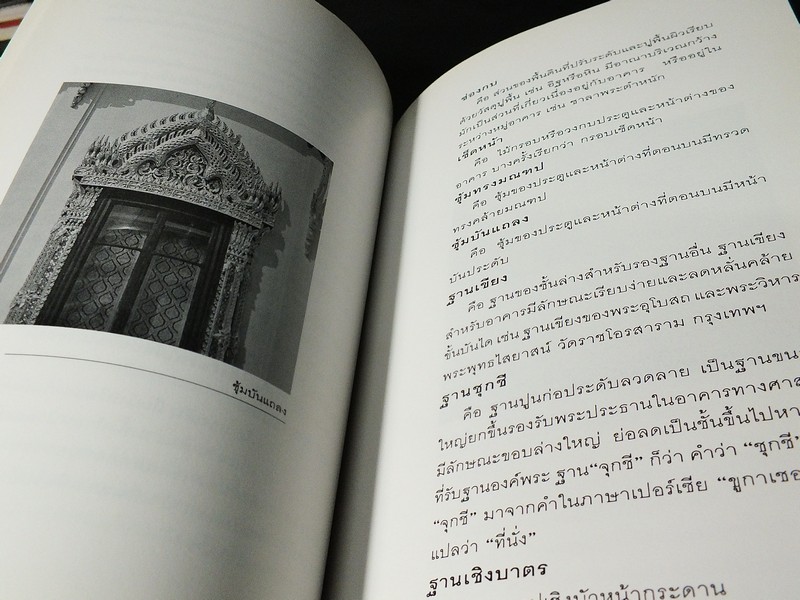 ซุ้มบันแถลง
ช่องกบ
คือ ส่วนของพื้นดินที่ปรับระดับและปูพื้นผิวเรียบ
ด้วยวัสดุปูพื้น เช่น อิฐหรือหิน มีอาณาบริเวณกว้าง
มักเป็นส่วนที่เกี่ยวเนื่องอยู่กับอาคาร หรืออยู่ใน
ระหว่างหมู่อาคาร เช่น ชาลาพระตำหนัก
เช็ดหน้า
คือ ไม้กรอบหรือวงกบประตูและหน้าต่างของ
อาคาร บางครั้งเรียกว่า กรอบเช็ดหน้า
ซุ้มทรงมณฑป
คือ ซุ้มของประตูและหน้าต่างที่ตอนบนมีทรวด
ทรงคล้ายมณฑป
ซุ้มบันแถลง
คือ ซุ้มของประตูและหน้าต่างที่ตอนบนมีหน้า
บันประดับ
ฐานเขียง
คือ ฐานของชั้นล่างสำหรับรองฐานอื่น ฐานเขียง
สำหรับอาคารมีลักษณะเรียบง่ายและลดหลั่นคล้าย
ขั้นบันได เช่น ฐานเขียงของพระอุโบสถ และพระวิหาร
พระพุทธไสยาสน์ วัดราชโอรสาราม กรุงเทพฯ
ฐานชุกชี
คือ ฐานปูนก่อประดับลวดลาย เป็นฐานขนา
ใหญ่ยกขึ้นรองรับพระประธานในอาคารทางศาส
มีลักษณะขอบล่างใหญ่ ย่อลดเป็นชั้นขึ้นไปหา
ที่รับฐานองค์พระ ฐาน“จุกชี” ก็ว่า คำว่า “ชุกชี”
“จุกชี” มาจากคำในภาษาเปอร์เซีย “ขูกาเซอ
แปลว่า “ที่นั่ง”
ฐานเชิงบาตร
เชิงบัวหน้ากระดาน